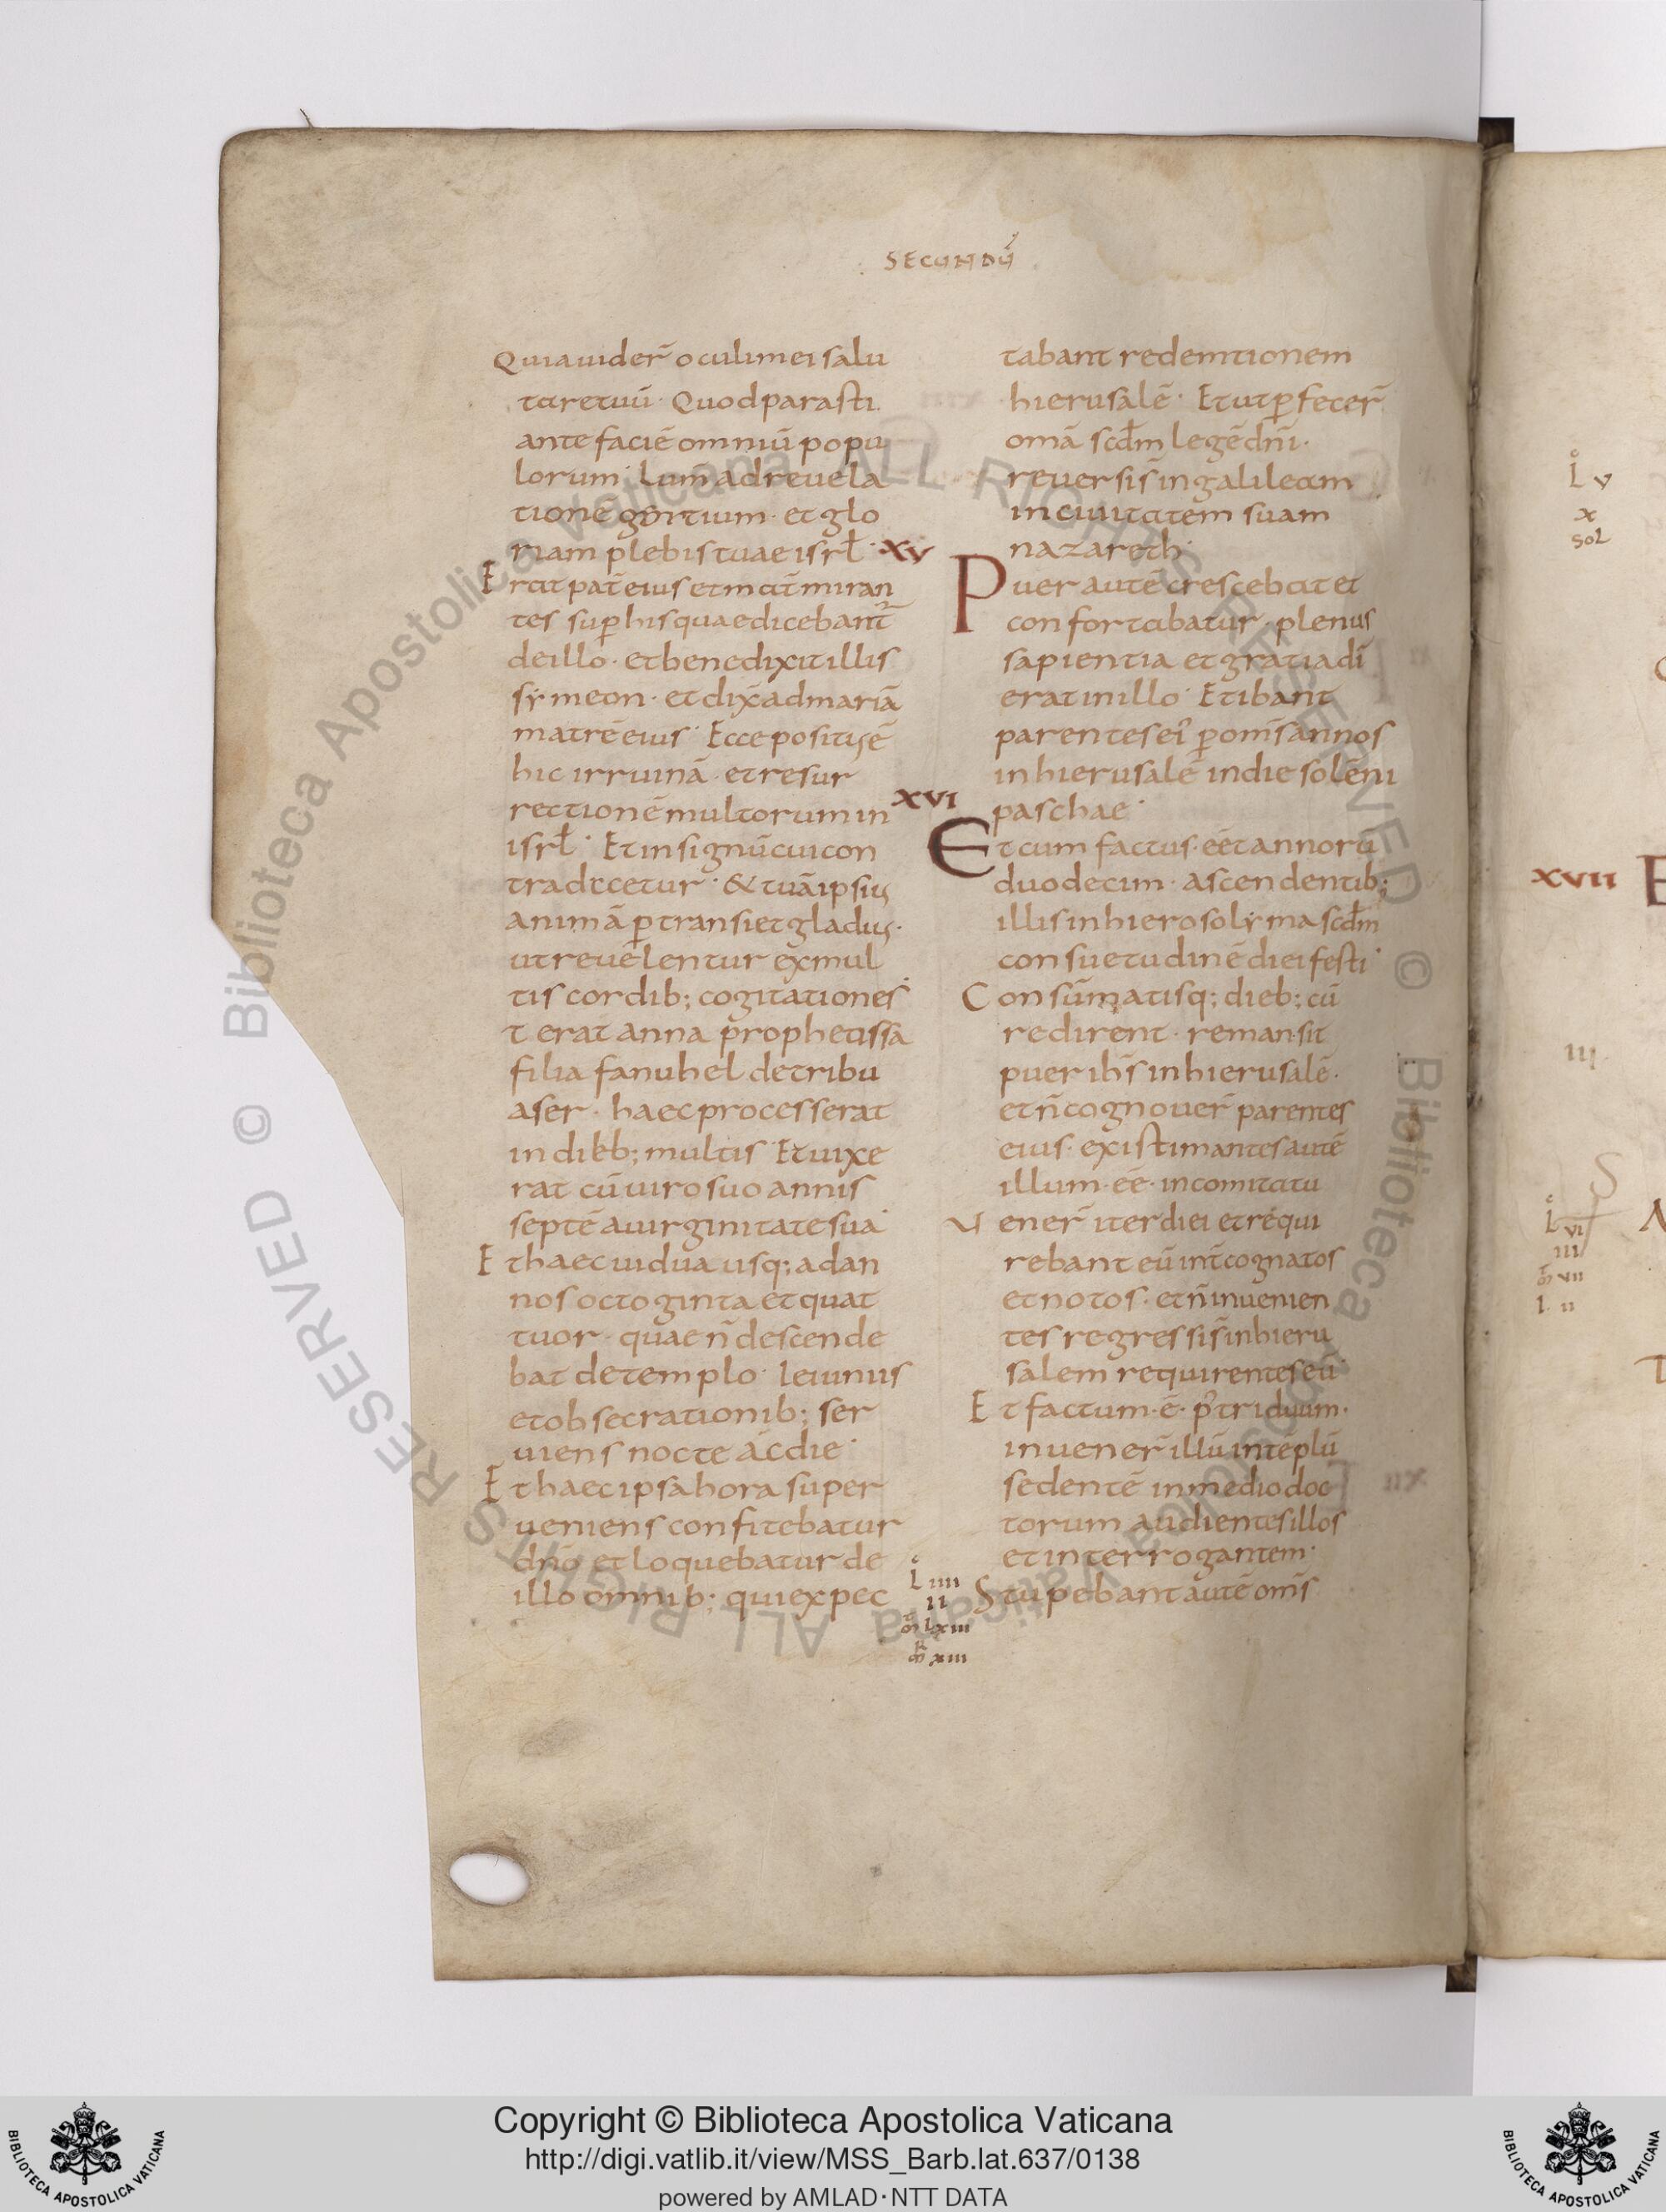 SECUNDŪ
Quia uider̄ oculi mei salu
tare tuū · Quod parasti
ante faciē omniū popu
lorum · Lum̄ ad reuela
tionē gentium · et glo
riam plebis tuae isrł · XV
Erat pat̄ eius et mat̄ miran
tes sup̱ his quae dicebant̄
de illo · et benedixit illis
sẏmeon · et dix̄ ad mariā
matrē eius · Ecce positus ē
hic in ruinā · et resur
rectionē multorum in
isrł · Et in signū cui con
tradicetur · & tuā ipsius
animā p̱transiet gladius ·
ut reuelentur ex mul
tis cordib; cogitationes ·
t erat anna prophetissa
filia fanuhel de tribu
aser · haec processerat
in dieb; multis · Et uixe
rat cū uiro suo annis
septē a uirginitate sua ·
Et haec uidua usq; ad an
nos octoginta et quat
tuor · quae n̄ descende
bat de templo · Ieiuniis
et obsecrationib; ser
uiens nocte ac die ·
Et haec ipsa hora super
ueniens confitebatur
dn̄o et loquebatur de
illo omnib; qui expec
L̊ IIII
II
m̄ LXIII
m̄ XIII
tabant redemtionem
hierusalē · Et ut p̱fecer̄
om̄a scd̄m legē dn̄i ·
reuersi s̄ in galileam
in ciuitatem suam
nazareth ·
Puer autē crescebat et
confortabatur · plenus
sapientia et gratia dī
erat in illo · Et ibant
parentes ei' p̱ om̄s annos
in hierusalē in die solēni
paschae ·
XVI
Et cum factus · eēt annorū
duodecim · ascendentib;
illis in hierosolẏma scd̄m
consuetudinē diei festi ·
Consūmatisq; dieb; cū
redirent · remansit
puer ih̄s in hierusalē ·
et n̄ cognouer̄ parentes
eius · existimantes autē
illum · eē · in comitatu
Uener̄ iter diei et requi
rebant eū int̄ cognatos
et notos · et n̄ inuenien
tes regressi s̄ in hieru
salem requirentes eū ·
Et factum · ē · p' triduum ·
inuener̄ illū in tēplū
sedentē in medio doc
torum audientes illos
et interrogantem ·
Stupebant autē om̄s
L̊ V
X
SOL
XVII E
III
L̊ VI
III
m̄ VII
L II
Biblioteca Apostolica Vaticana ALL RIGHTS RESERVED © Biblioteca Apostolica Vaticana ALL RIGHTS RESERVED ©
BIBLIOTECA APOSTOLICA VATICANA
Copyright © Biblioteca Apostolica Vaticana
http://digi.vatlib.it/view/MSS_Barb.lat.637/0138
powered by AMLAD·NTT DATA
BIBLIOTECA APOSTOLICA VATICANA